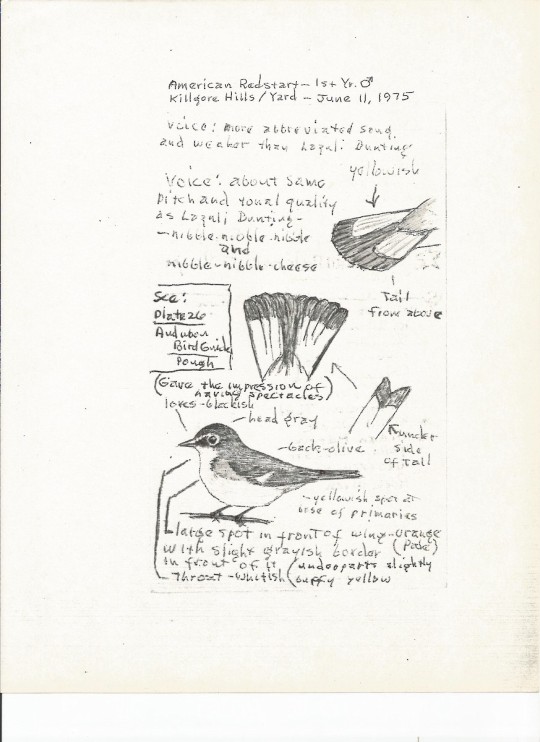 American Redstart - 1st Yr. ♂
Killgore Hills / Yard - June 11, 1975
Voice: more abbreviated song
and weaker than Lazuli Bunting
yellowish
Voice: about same
pitch and tonal quality
as Lazuli Bunting -
- nibble-nibble-nibble
and
nibble-nibble-cheese
Tail
from above
See:
Plate 26
Audubon
Bird Guide
Pough
(Gave the impression of
having spectacles)
lores - blackish
- head gray
- back - olive
under
side
of tail
- yellowish spot at
base of primaries
large spot in front of wing - orange
(Pale)
with slight grayish border
in front of it
(underparts slightly
buffy yellow
Throat - whitish